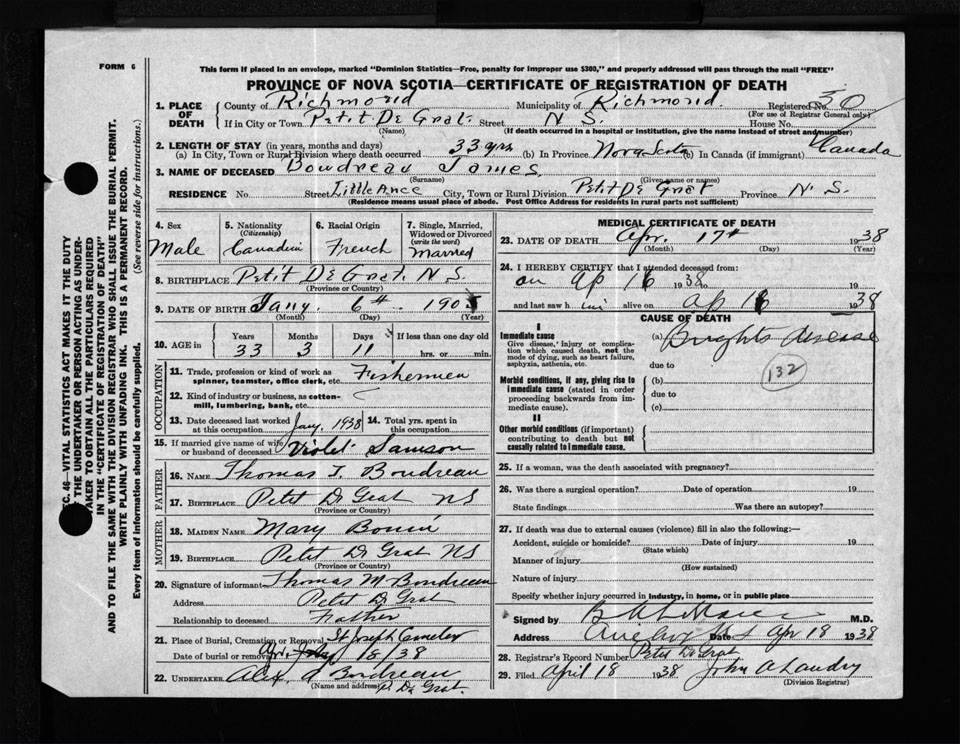 FORM 6
This form if placed in an envelope, marked "Dominion Statistics—Free, penalty for improper use $300," and properly addressed will pass through the mail "FREE"
PROVINCE OF NOVA SCOTIA—CERTIFICATE OF REGISTRATION OF DEATH
1. PLACE OF DEATH
County of Richmond Municipality of Richmond. Registered No. 30
(For use of Registrar General only)
If in City or Town Petit De Grat Street N S. House No.
(Name) (If death occurred in a hospital or institution, give the name instead of street and number)
2. LENGTH OF STAY (in years, months and days)
(a) In City, Town or Rural Division where death occurred 33 yrs (b) In Province Nova Scotia (c) In Canada (if immigrant) Canada
3. NAME OF DECEASED Boudreau James
(Surname) (Given name or names)
RESIDENCE No. Street Little Ance City, Town or Rural Division Petit De Grat Province N. S.
(Residence means usual place of abode. Post Office Address for residents in rural parts not sufficient)
4. Sex Male
5. Nationality (Citizenship) Canadien
6. Racial Origin French
7. Single, Married, Widowed or Divorced (write the word) Married
8. BIRTHPLACE Petit De Grat. N S.
(Province or Country)
9. DATE OF BIRTH Jany. 6th 1905
(Month) (Day) (Year)
10. AGE in Years 33 Months 3 Days 11 If less than one day old hrs. or min.
OCCUPATION
11. Trade, profession or kind of work as spinner, teamster, office clerk, etc. Fishermen
12. Kind of industry or business, as cotton-mill, lumbering, bank, etc.
13. Date deceased last worked at this occupation Jany. 1938
14. Total yrs. spent in this occupation
15. If married give name of wife or husband of deceased Violet Samson
FATHER
16. NAME Thomas J. Boudreau
17. BIRTHPLACE Petit D Grat NS
(Province or Country)
MOTHER
18. MAIDEN NAME Mary
19. BIRTHPLACE Petit D Grat NS
(Province or Country)
20. Signature of informant Thomas M Boudreau
Address Petit D Grat
Relationship to deceased Father
21. Place of Burial, Cremation or Removal St Joseph
Date of burial or removal 18/38
22. UNDERTAKER Alex A Boudreau
(Name and address) P. De Grat.
MEDICAL CERTIFICATE OF DEATH
23. DATE OF DEATH Apr. 17th 1938
(Month) (Day) (Year)
24. I HEREBY CERTIFY that I attended deceased from:
on Ap 16 1938 to 19
and last saw h im alive on Ap 16 1938
CAUSE OF DEATH
I
Immediate cause
Give disease, injury or complication which caused death, not the mode of dying, such as heart failure, asphyxia, asthenia, etc.
(a) Brights disease
due to
132
Morbid conditions, if any, giving rise to immediate cause (stated in order proceeding backwards from immediate cause)
(b)
due to
(c)
II
Other morbid conditions (if important) contributing to death but not causally related to immediate cause.
25. If a woman, was the death associated with pregnancy?
26. Was there a surgical operation? Date of operation 19
State findings Was there an autopsy?
27. If death was due to external causes (violence) fill in also the following:—
Accident, suicide or homicide? Date of injury 19
(State which)
Manner of injury
(How sustained)
Nature of injury
Specify whether injury occurred in industry, in home, or in public place
Signed by M.D.
Address Date Apr 18 1938
28. Registrar's Record Number Petit De Grat
29. Filed April 18 1938 John A Landry
(Division Registrar)
SEC. 46—VITAL STATISTICS ACT MAKES IT THE DUTY
OF THE UNDERTAKER OR PERSON ACTING AS UNDER-
TAKER TO OBTAIN ALL THE PARTICULARS REQUIRED
IN THE "CERTIFICATE OF REGISTRATION OF DEATH"
AND TO FILE THE SAME WITH THE DIVISION REGISTRAR WHO SHALL ISSUE THE BURIAL PERMIT.
WRITE PLAINLY WITH UNFADING INK. THIS IS A PERMANENT RECORD.
Every item of information should be carefully supplied. (See reverse side for instructions.)